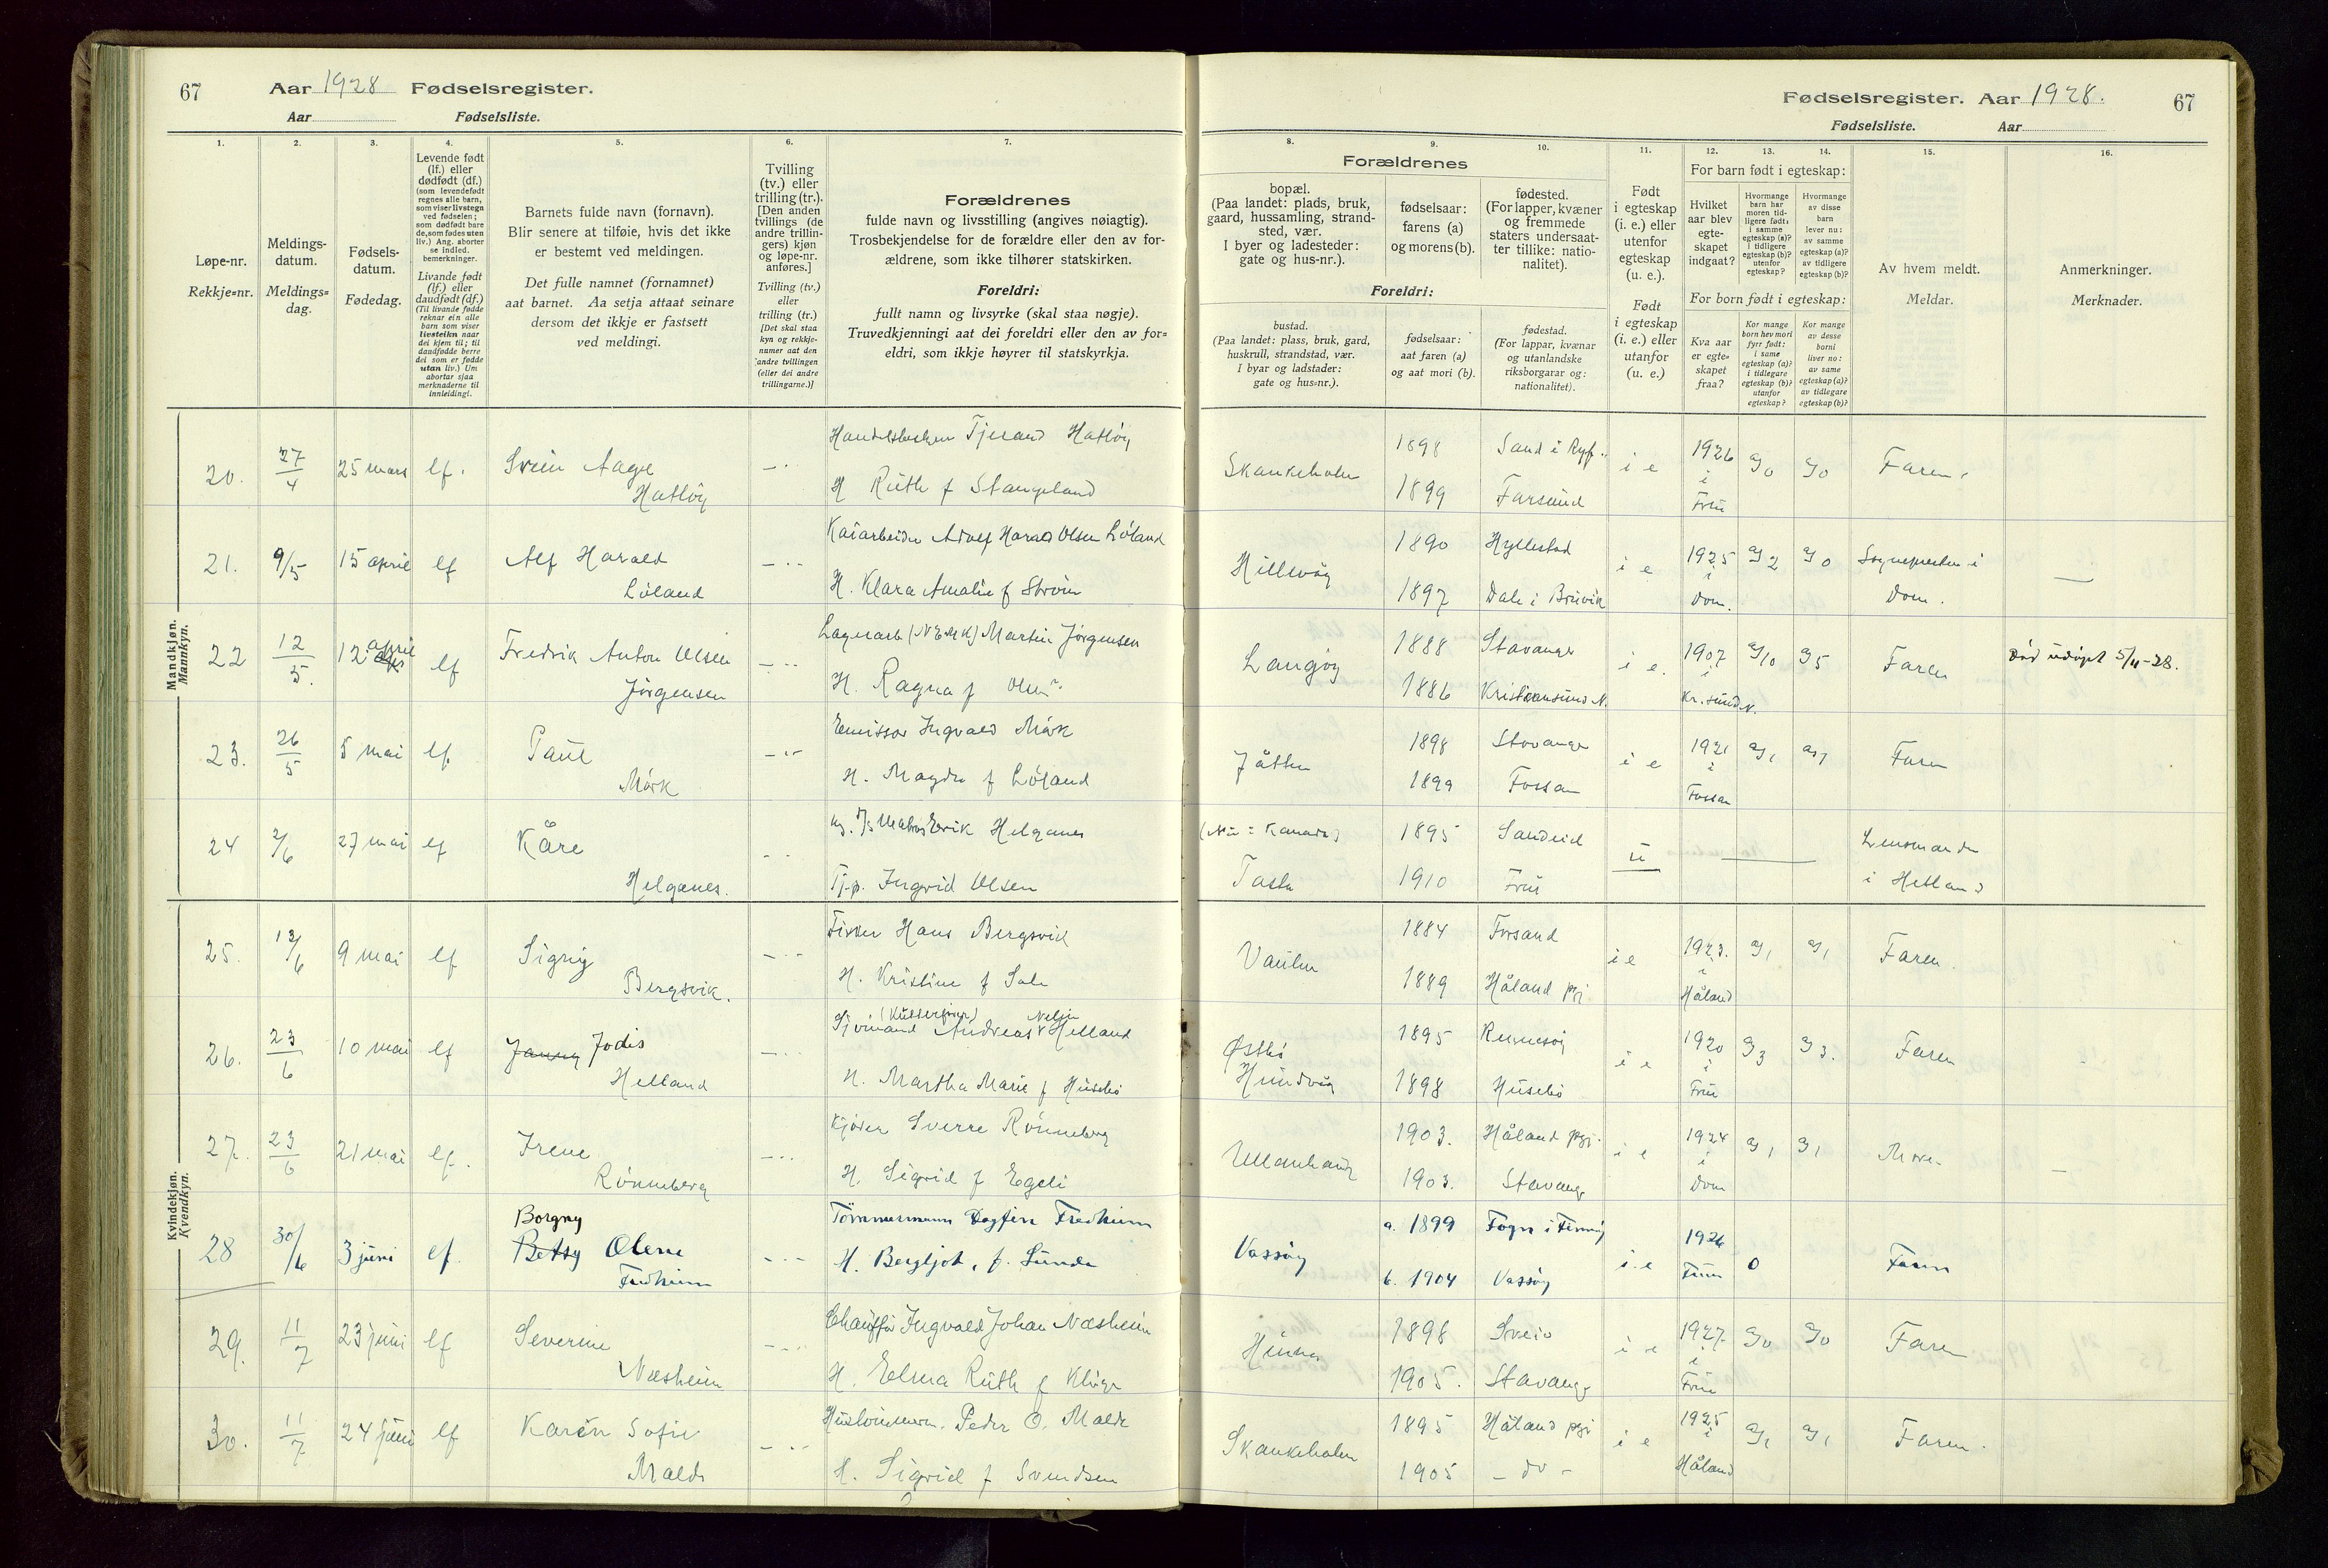 67 Aar 1928 Fødselsregister.
Aar Fødselsliste.
1. 2. 3. 4. 5. 6. 7.
Løpe-nr.
Rekkje=nr.
Meldings-
datum.
Meldings=
dag.
Fødsels-
datum.
Fødedag.
Levende født
(lf.) eller
dødfødt (df.)
(som levendefødt
regnes alle barn,
som viser livstegn
ved fødselen;
som dødfødt bare
de, som fødes uten
liv.) Ang. aborter
se indled.
bemerkninger.
Livande født
(lf.) eller
daudfødt (df.)
(Til livande fødde
reknar ein alle
barn som viser
livsteikn naar
dei kjem til; til
daudfødde berre
dei som er fødde
utan liv.) Um
abortar sjaa
merknaderne til
innleidingi.
Barnets fulde navn (fornavn).
Blir senere at tilføie, hvis det ikke
er bestemt ved meldingen.
Det fulle namnet (fornamnet)
aat barnet. Aa setja attaat seinare
dersom det ikkje er fastsett
ved meldingi.
Tvilling
(tv.) eller
trilling (tr.).
[Den anden
tvillings (de
andre trillin-
gers) kjøn
og løpe-nr.
anføres.]
Tvilling (tv.)
eller
trilling (tr.)
[Det skal staa
kyn og rekkje-
numer aat den
andre tvillingen
(eller dei andre
trillingarne.)]
Forældrenes
fulde navn og livsstilling (angives nøiagtig).
Trosbekjendelse for de forældre eller den av for-
ældrene, som ikke tilhører statskirken.
Foreldri:
fullt namn og livsyrke (skal staa nøgje).
Truvedkjenningi aat dei foreldri eller den av for=
eldri, som ikkje høyrer til statskyrkja.
Mandkjøn.
Mannkyn.
20. 27/4 25 mars lf. Svein Aage Hatløy
Tjerand Hatløy
H Ruth f Stangeland
21. 9/5 15 april lf Alf Harald Løland
Kaiarbeider Adolf Harald Olsen Løland
H. Klara Amalie f Strøm
22 12/5. 12 april lf Fredrik Anton Olsen Jørgensen
Lagerarb (NEMK) Martin Jørgensen
H. Ragna f Olsen
23. 26/5 5 mai lf Paul Mørk
Emissær Ingvald Mørk
H. Magda f Løland
24 2/6 27 mai lf Kåre Helganes.
Erik Helganes
Tj.p. Ingrid Olsen
Kvindekjøn.
Kvendkyn.
25. 13/6 9 mai lf Sigrig Bergsvik.
Fisker Hans Bergsvik
H. Kristine f Sele
26. 23/6 10 mai lf Jenny Jodis Helland
Sjømand Andreas Helland
H. Martha Marie f Husebø
27. 23/6 21 mai lf. Irene Rønneberg
Kjører Sverre Rønneberg
H. Sigrid f Egeli
28 30/6 3 juni lf. Borgny Betsy Olene Fredheim
Tømmermann Dagfin Fredheim
H. Bergljot, f. Sunde
29. 11/7 23 juni lf Severine Næsheim
Chauffør Ingvald Johan Næsheim
H. Elma Ruth f Kluge
30. 11/7 24 juni lf Karen Sofie Malde
Hustømmerm. Peder O. Malde
H. Sigrid f Svendsen
Fødselsregister. Aar 1928. 67
Fødselsliste. Aar
8. 9. 10. 11. 12. 13. 14. 15. 16.
Forældrenes
bopæl.
(Paa landet: plads, bruk,
gaard, hussamling, strand-
sted, vær.
I byer og ladesteder:
gate og hus-nr.).
fødselsaar:
farens (a)
og morens (b).
fødested.
(For lapper, kvæner
og fremmede
staters undersaat-
ter tillike: natio-
nalitet).
Foreldri:
bustad.
(Paa landet: plass, bruk, gard,
huskrull, strandstad, vær.
I byar og ladstader:
gate og hus=nr.).
fødselsaar:
aat faren (a)
og aat mori (b).
fødestad.
(For lappar, kvænar
og utanlandske
riksborgarar og:
nationalitet).
Født
i egteskap
(i. e.) eller
utenfor
egteskap
(u. e.).
Født
i egteskap
(i. e.) eller
utanfor
(u. e.)
For barn født i egteskap:
Hvilket
aar blev
egte-
skapet
indgaat?
Hvormange
barn har
moren tid-
ligere født:
i samme
egteskap (a)?
i tidligere
egteskap (b)?
utenfor
egteskap?
Hvormange
av disse
barn
lever nu:
av samme
egteskap (a)?
av tidligere
egteskap (b)?
For born født i egteskap:
Kva aar
er egte-
skapet
fraa?
Kor mange
born hev mori
fyrr født:
i same
egteskap (a)?
i tidlegare
egteskap (b)?
utanfor
egteskap?
Kor mange
av desse
borni
liver no:
av same
egteskap (a)?
av tidlegare
egteskap (b)?
Av hvem meldt.
Meldar.
Anmerkninger.
Merknader.
Skankeholm 1898 Sand i Ryf. i e 1926 i Frue a/0 a/0 Faren.
1899 Farsund
Hillevåg 1890 Hyllestad i e 1925 i Dom. a/2 a/0 Sognepresten i Dom.
1897 Dale i Bruvik
Langøy 1888 Stavanger i e. 1907 i Kr.sund N. a/10 a/5 Faren Død udøpt 5/11-28.
1886 Kristiansund N.
Jåtten 1898 Stavanger i e 1921 i Fossan a/1 a/1 Faren
1899 Fossan
(Nu: Kanada) 1895 Sandeid u Lensmanden
Tasta 1910 Frue i Hetland
Vaulen 1884 Forsand i e 1923. i Håland a/1 a/1 Faren.
1889 Håland pgj
Østbø 1895 Rennesøy i e 1920 i Frue a/3 a/3. Faren
Hundvåg 1898 Husebø
Ullenhaug 1903. Håland pgj. i e 1924 i Dom a/1 a/1 Moren
1903. Stavanger
Vassøy a. 1899 Fogn i Finnøy i. e 1926 Frue 0 Faren
b. 1904 Vassøy
Hinna 1898 Sveio i e 1927. i Frue a/0 a/0 Faren
1905. Stavanger
Skankeholm 1895 Håland pgj i e 1925 i Håland a/1 a/1 Faren.
1905 - do -